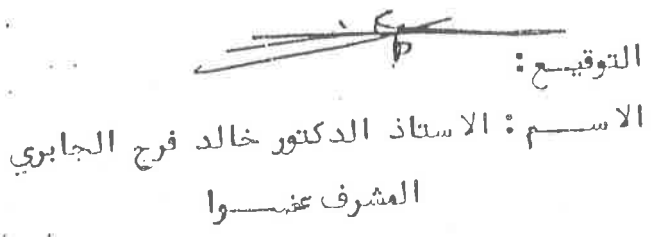 التوقيـــع :
الاســـم : الاستاذ الدكتور خالد فرج الجابري
المشرف عضـــوا